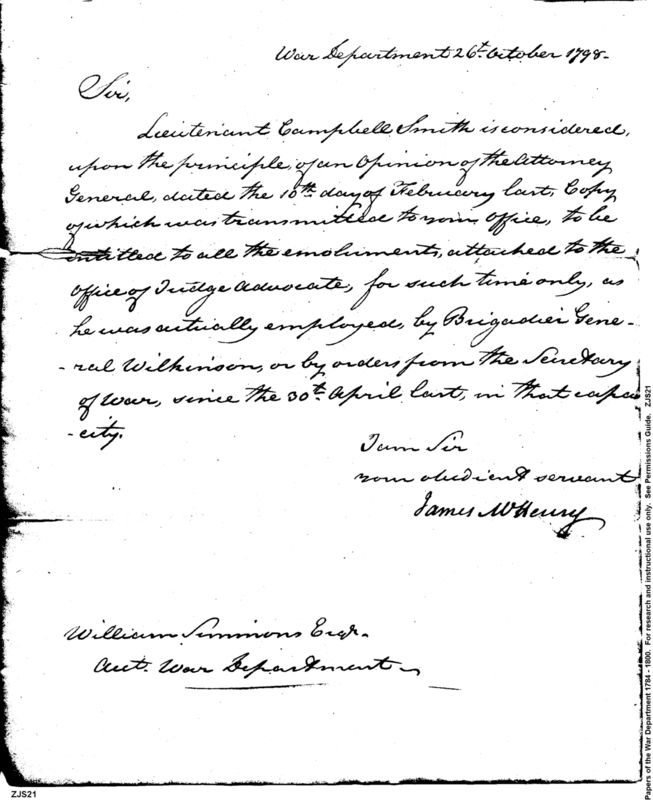 War Department 26th. October 1798-
Sir,
Lieutenant Campbell Smith is considered,
upon the principle, of an Opinion of the Attorney
General, dated the 10th day of February last, Copy
of which was transmitted to your Office, to be
entitled to all the emoluments, attached to the
Office of Judge Advocate, for such time only, as
he was actually employed, by Brigadier Gene-
-ral Wilkinson, or by orders from the Secretary
of War, since the 30th. April last, in that capa
-city.
I am Sir
your obedient servant
James McHenry
William Simmons Esqr.
Acct. War Department
ZJS21
Papers of the War Department 1784 - 1800. For research and instructional use only. See Permissions Guide. ZJS21